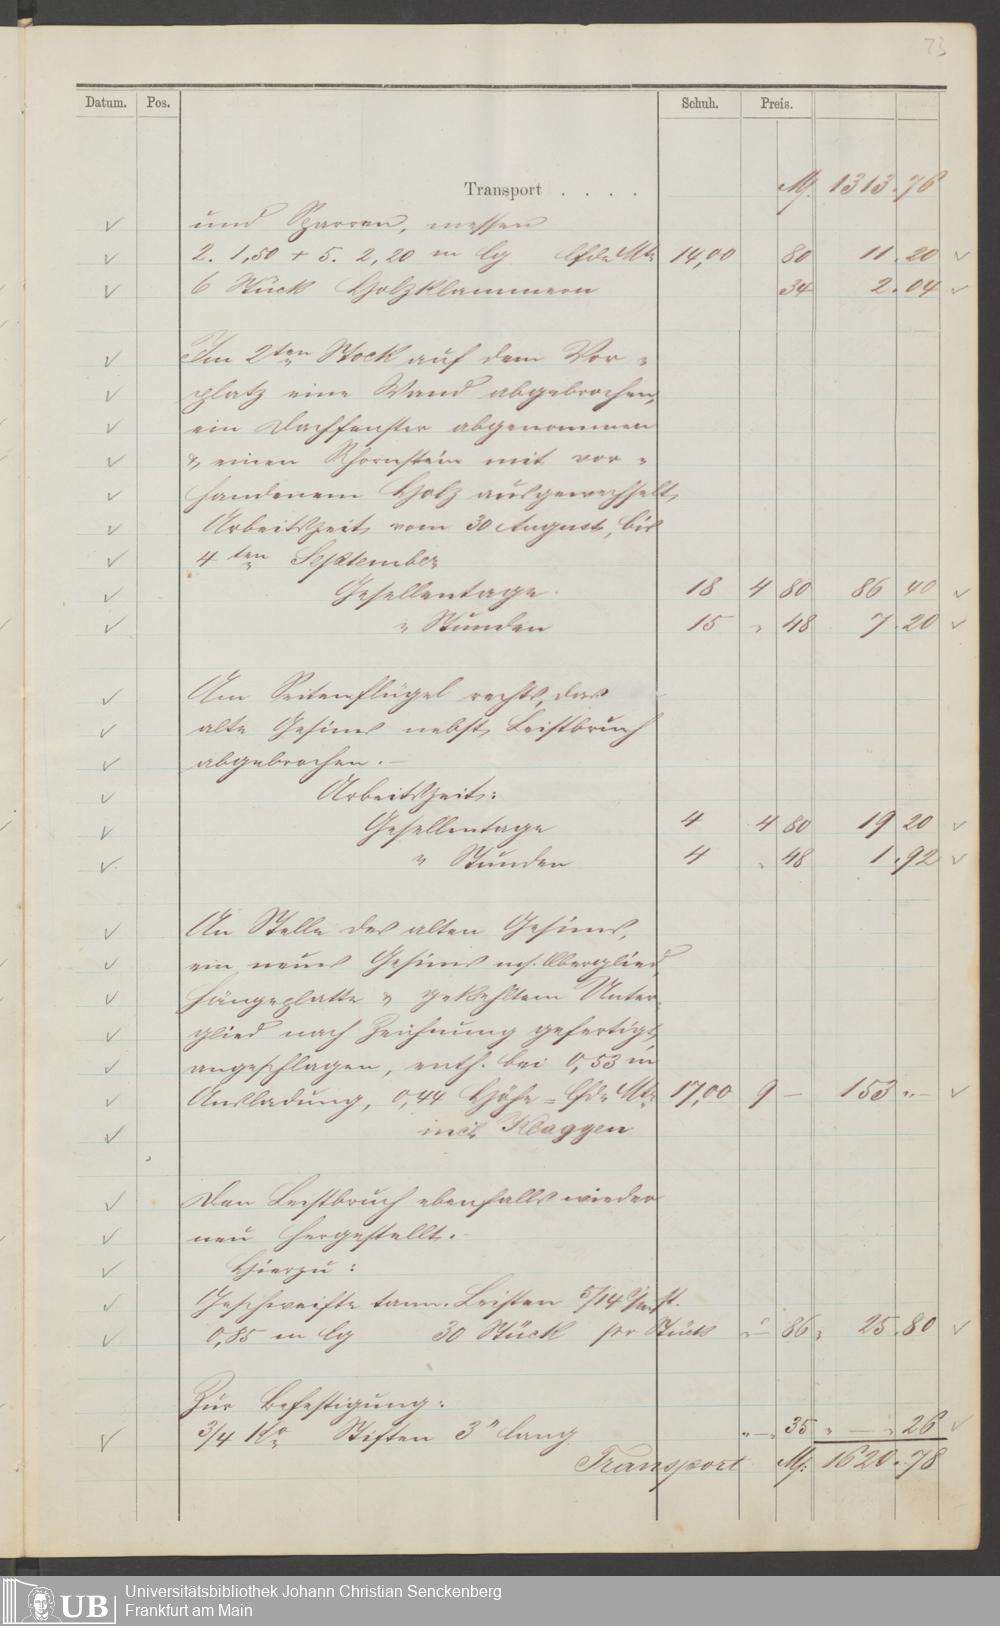 73
Datum. Pos. Schuh. Preis.
Transport . . . . M. 1313.76
und Sparren, messen
2. 1,50 + 5. 2,20 m lg lfde Mtr 14,00 80 11.20
6 Stück Holzklammern 34 2.04
Im 2ten Stock auf dem Vor-
platz eine Wand abgebrochen,
ein Dachfenster abgenommen
& einen Schornstein mit vor-
handenem Holz ausgewechselt,
Arbeitszeit vom 30 August, bis
4 ten September
Gesellentage 18 4 80 86 40
" Stunden 15 " 48 7.20
Am Seitenflügel rechts, das
alte Gesims nebst Leistbruch
abgebrochen. —
Arbeitszeit:
Gesellentage 4 4 80 19 20
" Stunden 4 " 48 1.92
An Stelle des alten Gesims,
ein neues Gesims m. Oberglied,
Hängeplatte & gekehltem Unter-
glied nach Zeichnung gefertigt,
angeschlagen, enth. bei 0,53 m
Ausladung, 0,44 Höhe = lfde Mtr 17,00 9 — 153 " —
incl. Klaggen
Den Leistbruch ebenfalls wieder
neu hergestellt.
Hierzu:
Geschweifte tann. Leisten 5/14 c/m st.
0,85 m lg 30 Stück pr Stück " — 86 25.80
Zur Befestigung:
3/4 Ko Stiften 3" lang " — 35 " — 26
Transport M. 1620.78
Universitätsbibliothek Johann Christian Senckenberg
Frankfurt am Main
UB